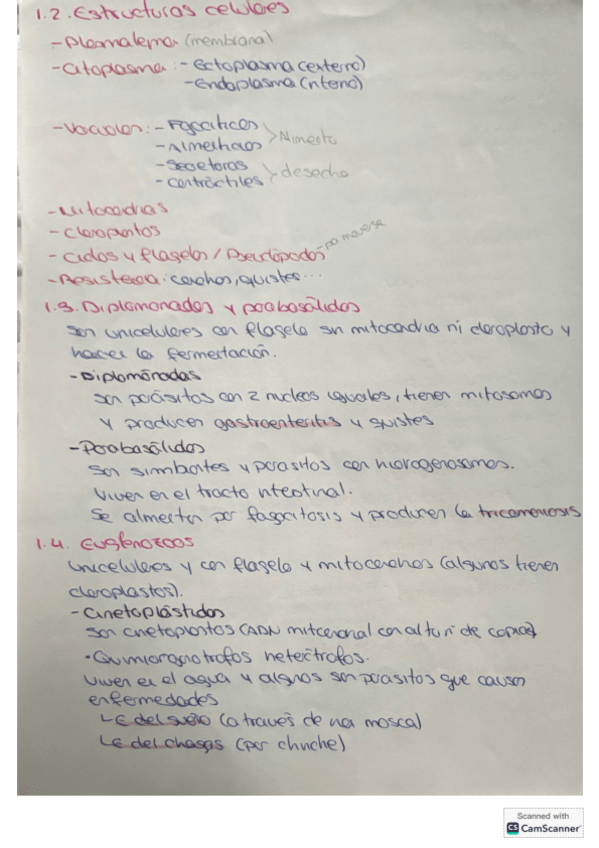 1.2. Estructuras celulares
- Plasmalema (membrana)
- Citoplasma: - Ectoplasma (externo)
- Endoplasma (interno)
- Vacuolas: - Fagocíticas
- Alimenticias > Alimento
- Secretoras
- Contráctiles > desecho
- Mitocondrias
- Cloroplastos
- Cilios y flagelos / Pseudópodos - pa moverse
- Resistencia: conchas, quistes...
1.3. Diplomonados y parabasálidos
Son unicelulares con flagelo sin mitocondria ni cloroplasto y
hacen la fermentación.
- Diplomónadas
Son parásitos con 2 nucleos iguales, tienen mitosomas
y producen gastroenteritis y quistes
- Parabasálidos
Son simbiontes y parasitos con hidrogenosomas.
Viven en el tracto intestinal.
Se alimentan por fagocitosis y producen la tricomoniosis
1.4. Euglenozoos
Unicelulares y con flagelo y mitocondrias (algunos tienen
cloroplastos).
- Cinetoplástidos
Son cinetoplastos (ADN mitocondrial con alto nº de copias)
• Quimiorganotrofos heterótrofos.
Viven en el agua y algunos son parasitos que causan
enfermedades
↳ E del sueño (a través de una mosca)
↳ E del chagas (por chinche)
Scanned with
CS CamScanner